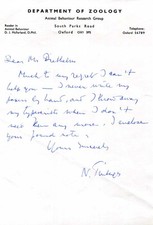 DEPARTMENT OF ZOOLOGY
Animal Behaviour Research Group
South Parks Road
Oxford OX1 3PS
Reader in
Animal Behaviour:
D. J. McFarland, D.Phil.
Telephone:
Oxford 56789
Dear Mr
Much to my regret I can't
help you — I never write my
papers by hand, and I throw away
my typescripts when I don't
need them any more. I enclose
your
Yours sincerely
N. Tinbergen